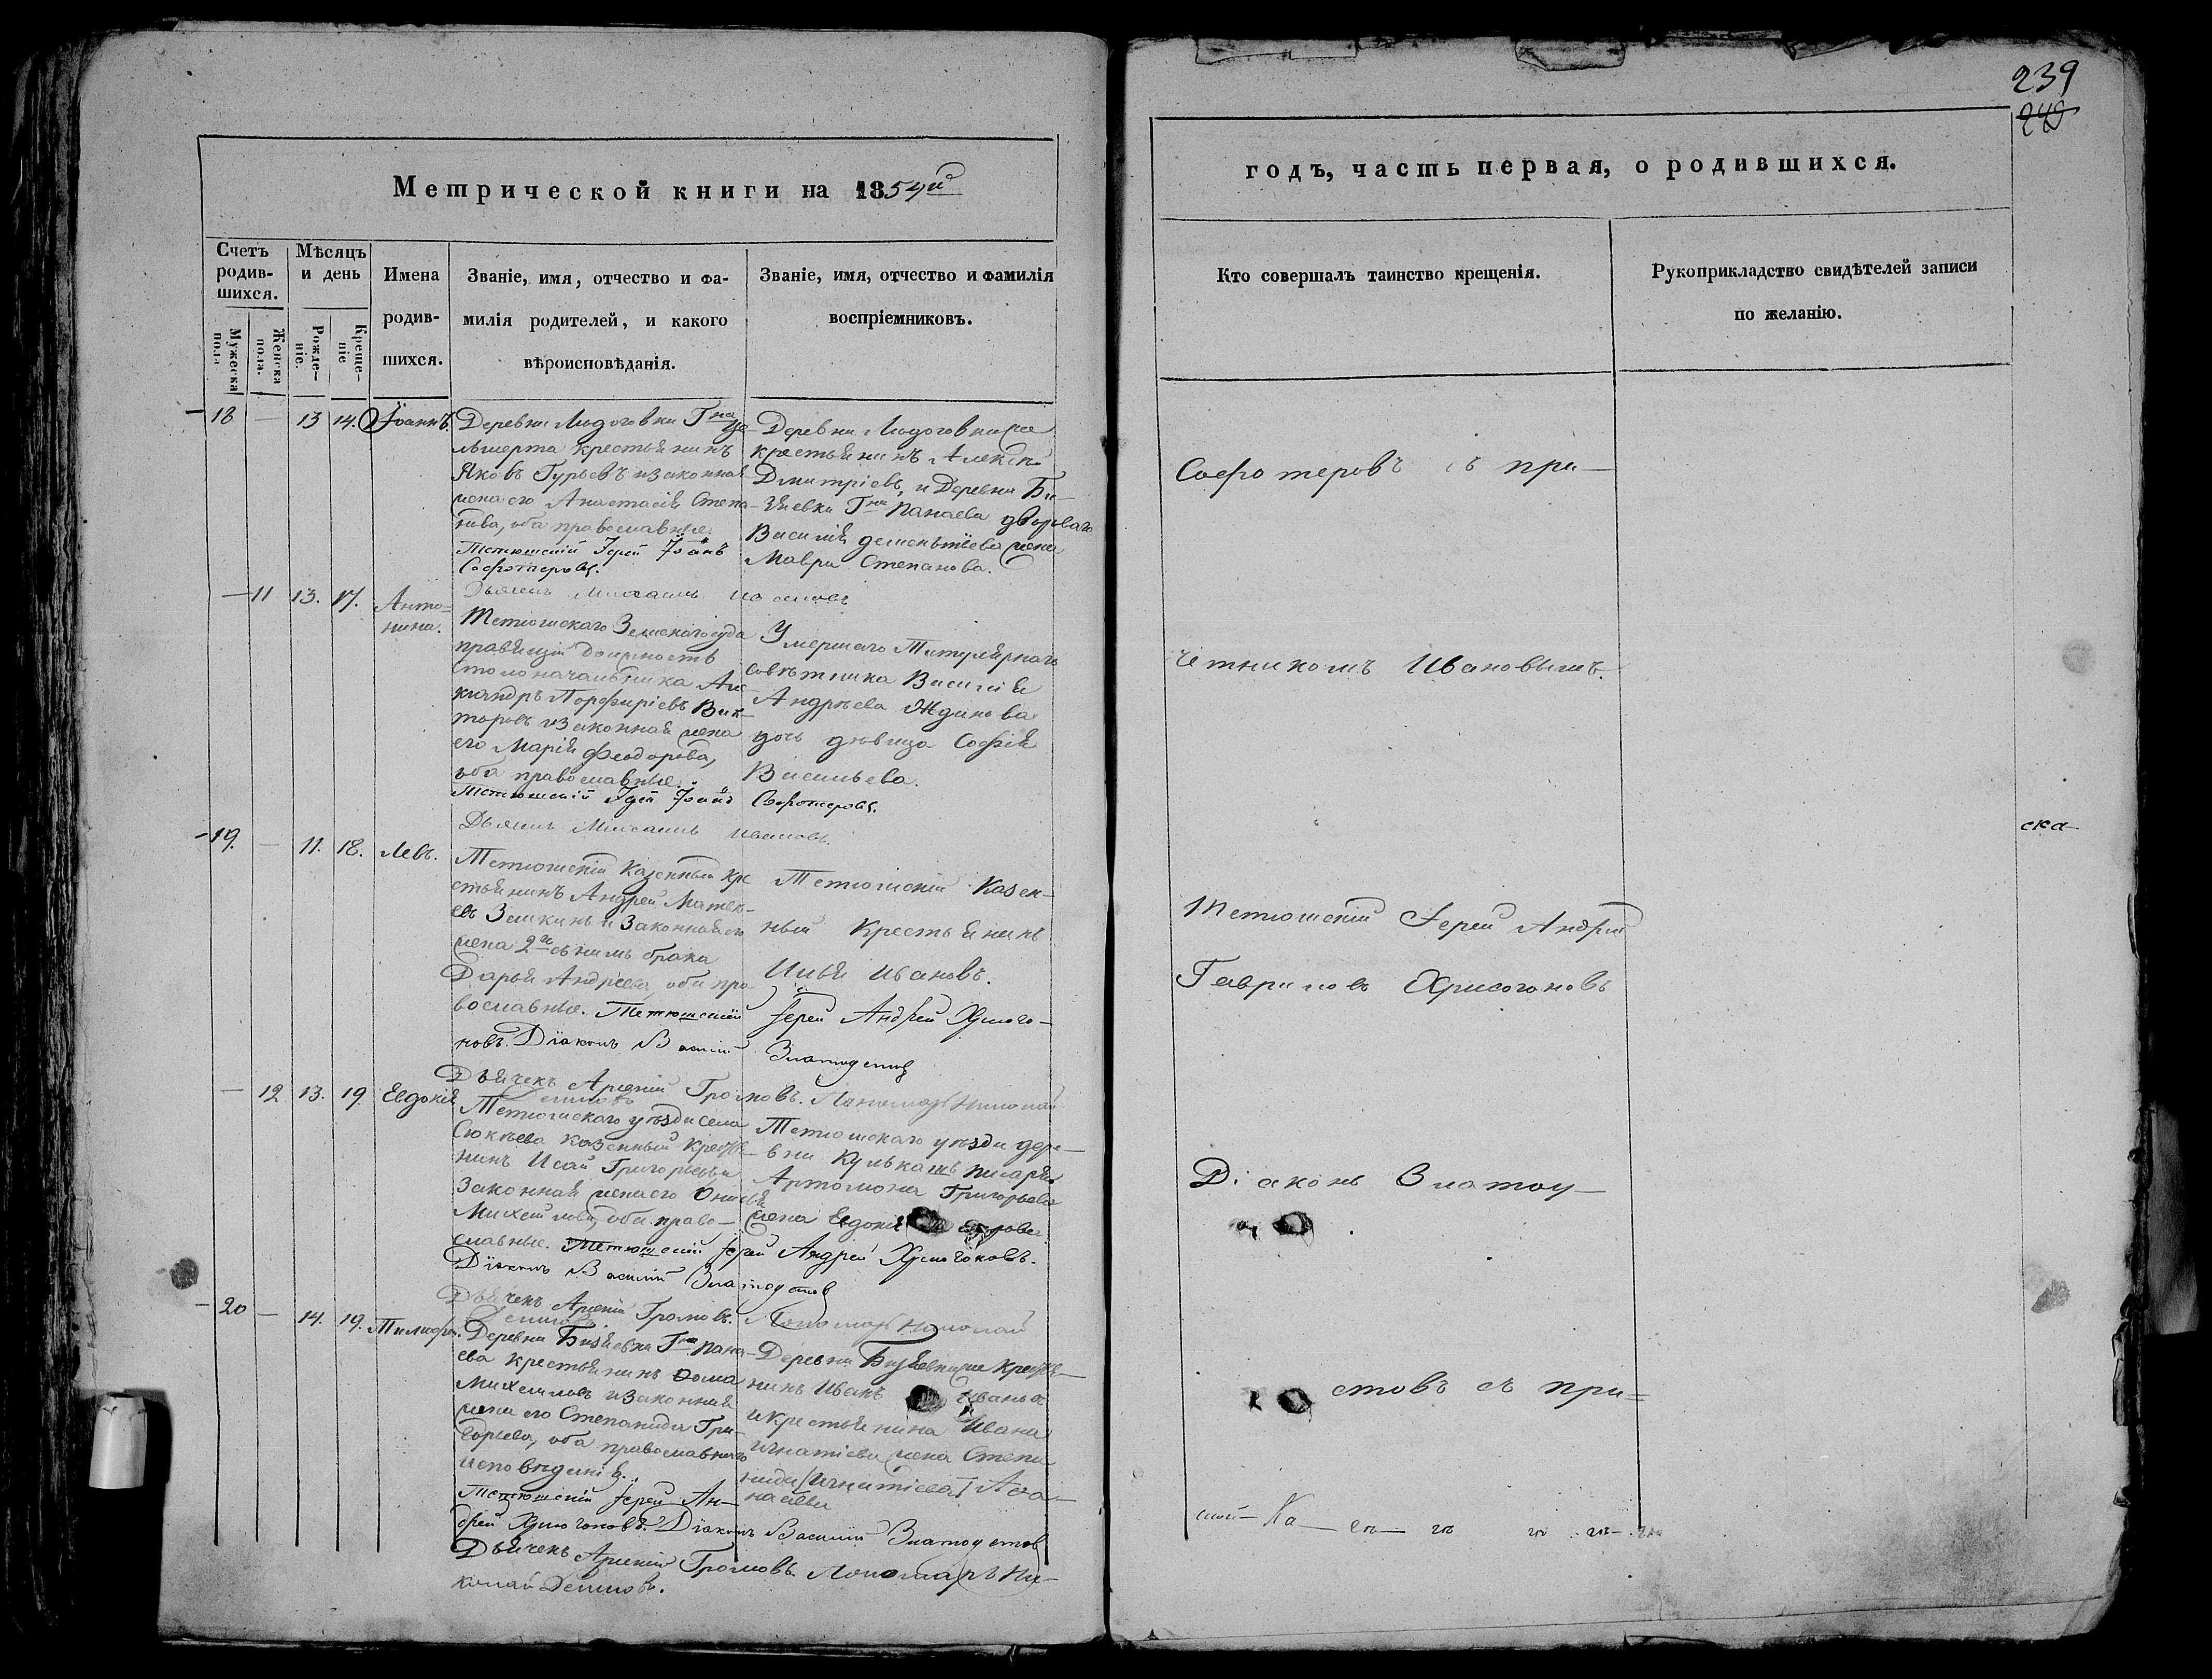 239
240
Метрической книги на 1854й
годъ, часть первая, о родившихся.
Счетъ родив-шихся.
Мужеска пола
Женска пола.
Мѣсяцъ и день
Рожде-ніе.
Креще-ніе
Имена
родив-
шихся.
Званіе, имя, отчество и фа-
милія родителей, и какого
вѣроисповѣданія.
Званіе, имя, отчество и фамилія
воспріемниковъ.
Кто совершалъ таинство крещенія.
Рукоприкладство свидѣтелей записи
по желанію.
18 — 13 14. Іоаннъ.
Деревни Людоговки Гна
крестьянинъ
Яковъ Гурьевъ и законная
жена его Анастасія Степа-
нова, оба православные.
Тетюшскій Іерей Іоаннъ
Софотеровъ.
Деревни Людоговки же
крестьянинъ Алексѣй
Дмитріевъ, и Деревни Би-
зяевки Гна Панаева двороваго
Василія Дементьева жена
Мавра Степанова.
Софотеровъ съ при-
— 11 13. 17. Анто-
нина.
Тетюшскаго Земскаго суда
правящій должность
столоначальника Але
ксандръ Порфиріевъ Вик-
торовъ и законная жена
его Марія Феодорова,
оба православные.
Тетюшскій Іерей Іоаннъ Софотеровъ.
Умершаго Титулярнаго
совѣтника Василія
Андреева Жданова
дочь дѣвица Софія
Васильева.
четникомъ Ивановымъ.
19. — 11. 18. Левъ.
Тетюшскій Казенный кре
стьянинъ Андрей Матвѣ-
евъ Земкинъ и Законная его
жена 2го съ нимъ брака
Дарья Андреева, оба пра
вославные. Тетюшскій Іерей Андрей Хрисого-
новъ. Діаконъ Василій Златоустовъ
Дьячекъ Арсеній Громовъ. Пономарь Николай
Тетюшскій Казен-
ный Крестьянинъ
Илья Ивановъ.
Тетюшскій Іерей Андрей
Гавриловъ Хрисогоновъ
ска-
— 12 13. 19. Евдокія
Тетюшскаго уѣзда села
Сюкеева казенный крестья-
нинъ Исай Григорьевъ и
Законная жена его Онисья
Михайлова, оба право-
славные. Тетюшскій Іерей Андрей Хрисогоновъ.
Діаконъ Василій Златоустовъ
Дьячекъ Арсеній Громовъ. Пономарь Николай
Тетюшскаго уѣзда дере-
вни Кулькашъ писаря
Артомона Григорьева
жена Евдокія Егорова.
Діаконъ Златоу-
20 — 14. 19. Тимофей.
Деревни Бизяевки Гна Пана-
ева крестьянинъ Ѳома
Михайловъ и законная
жена его Степанида Гри-
горьева, оба православнаго
исповѣданія.
Тетюшскій Іерей Ан-
дрей Хрисогоновъ. Діаконъ Василій Златоустовъ
Дьячекъ Арсеній Громовъ. Пономарь Ни-
колай
Деревни Бизяевки же крестья-
нинъ Иванъ Ивановъ
и крестьянина Ивана
Игнатіева жена Степа
нида
стовъ съ при-